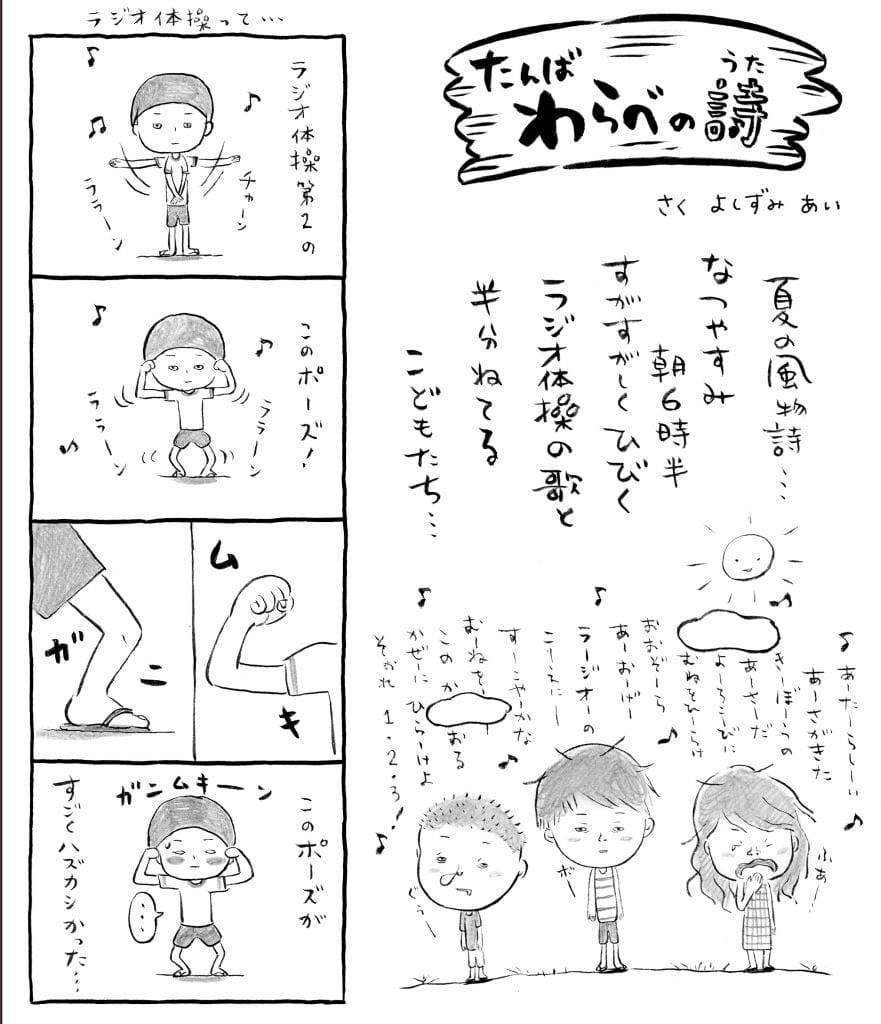 たんば
わらべの
詩
うた
さく よしずみ あい
夏の風物詩…
なつやすみ
朝6時半
すがすがしくひびく
ラジオ体操の歌と
半分ねてる
こどもたち…
♪あーたーらしーい
あーさがきた
きーぼーうの
あーさーだ
よーろこびに
むねをひーらけ
おおぞーら
あーおーげー
♪ラージオーの
こーえにー
すーこやーかな
むーねをー
このかおる
かぜーにひらーけよ
それ 1・2・3!
ふぁー
ボー
ぐぅー
ラジオ体操って…
ラジオ体操第2の
チャーン
ララーン
このポーズ!
ララーン
ララーン
ガニ
ムキ
ガンムキーン
このポーズが
すごくハズカシかった…